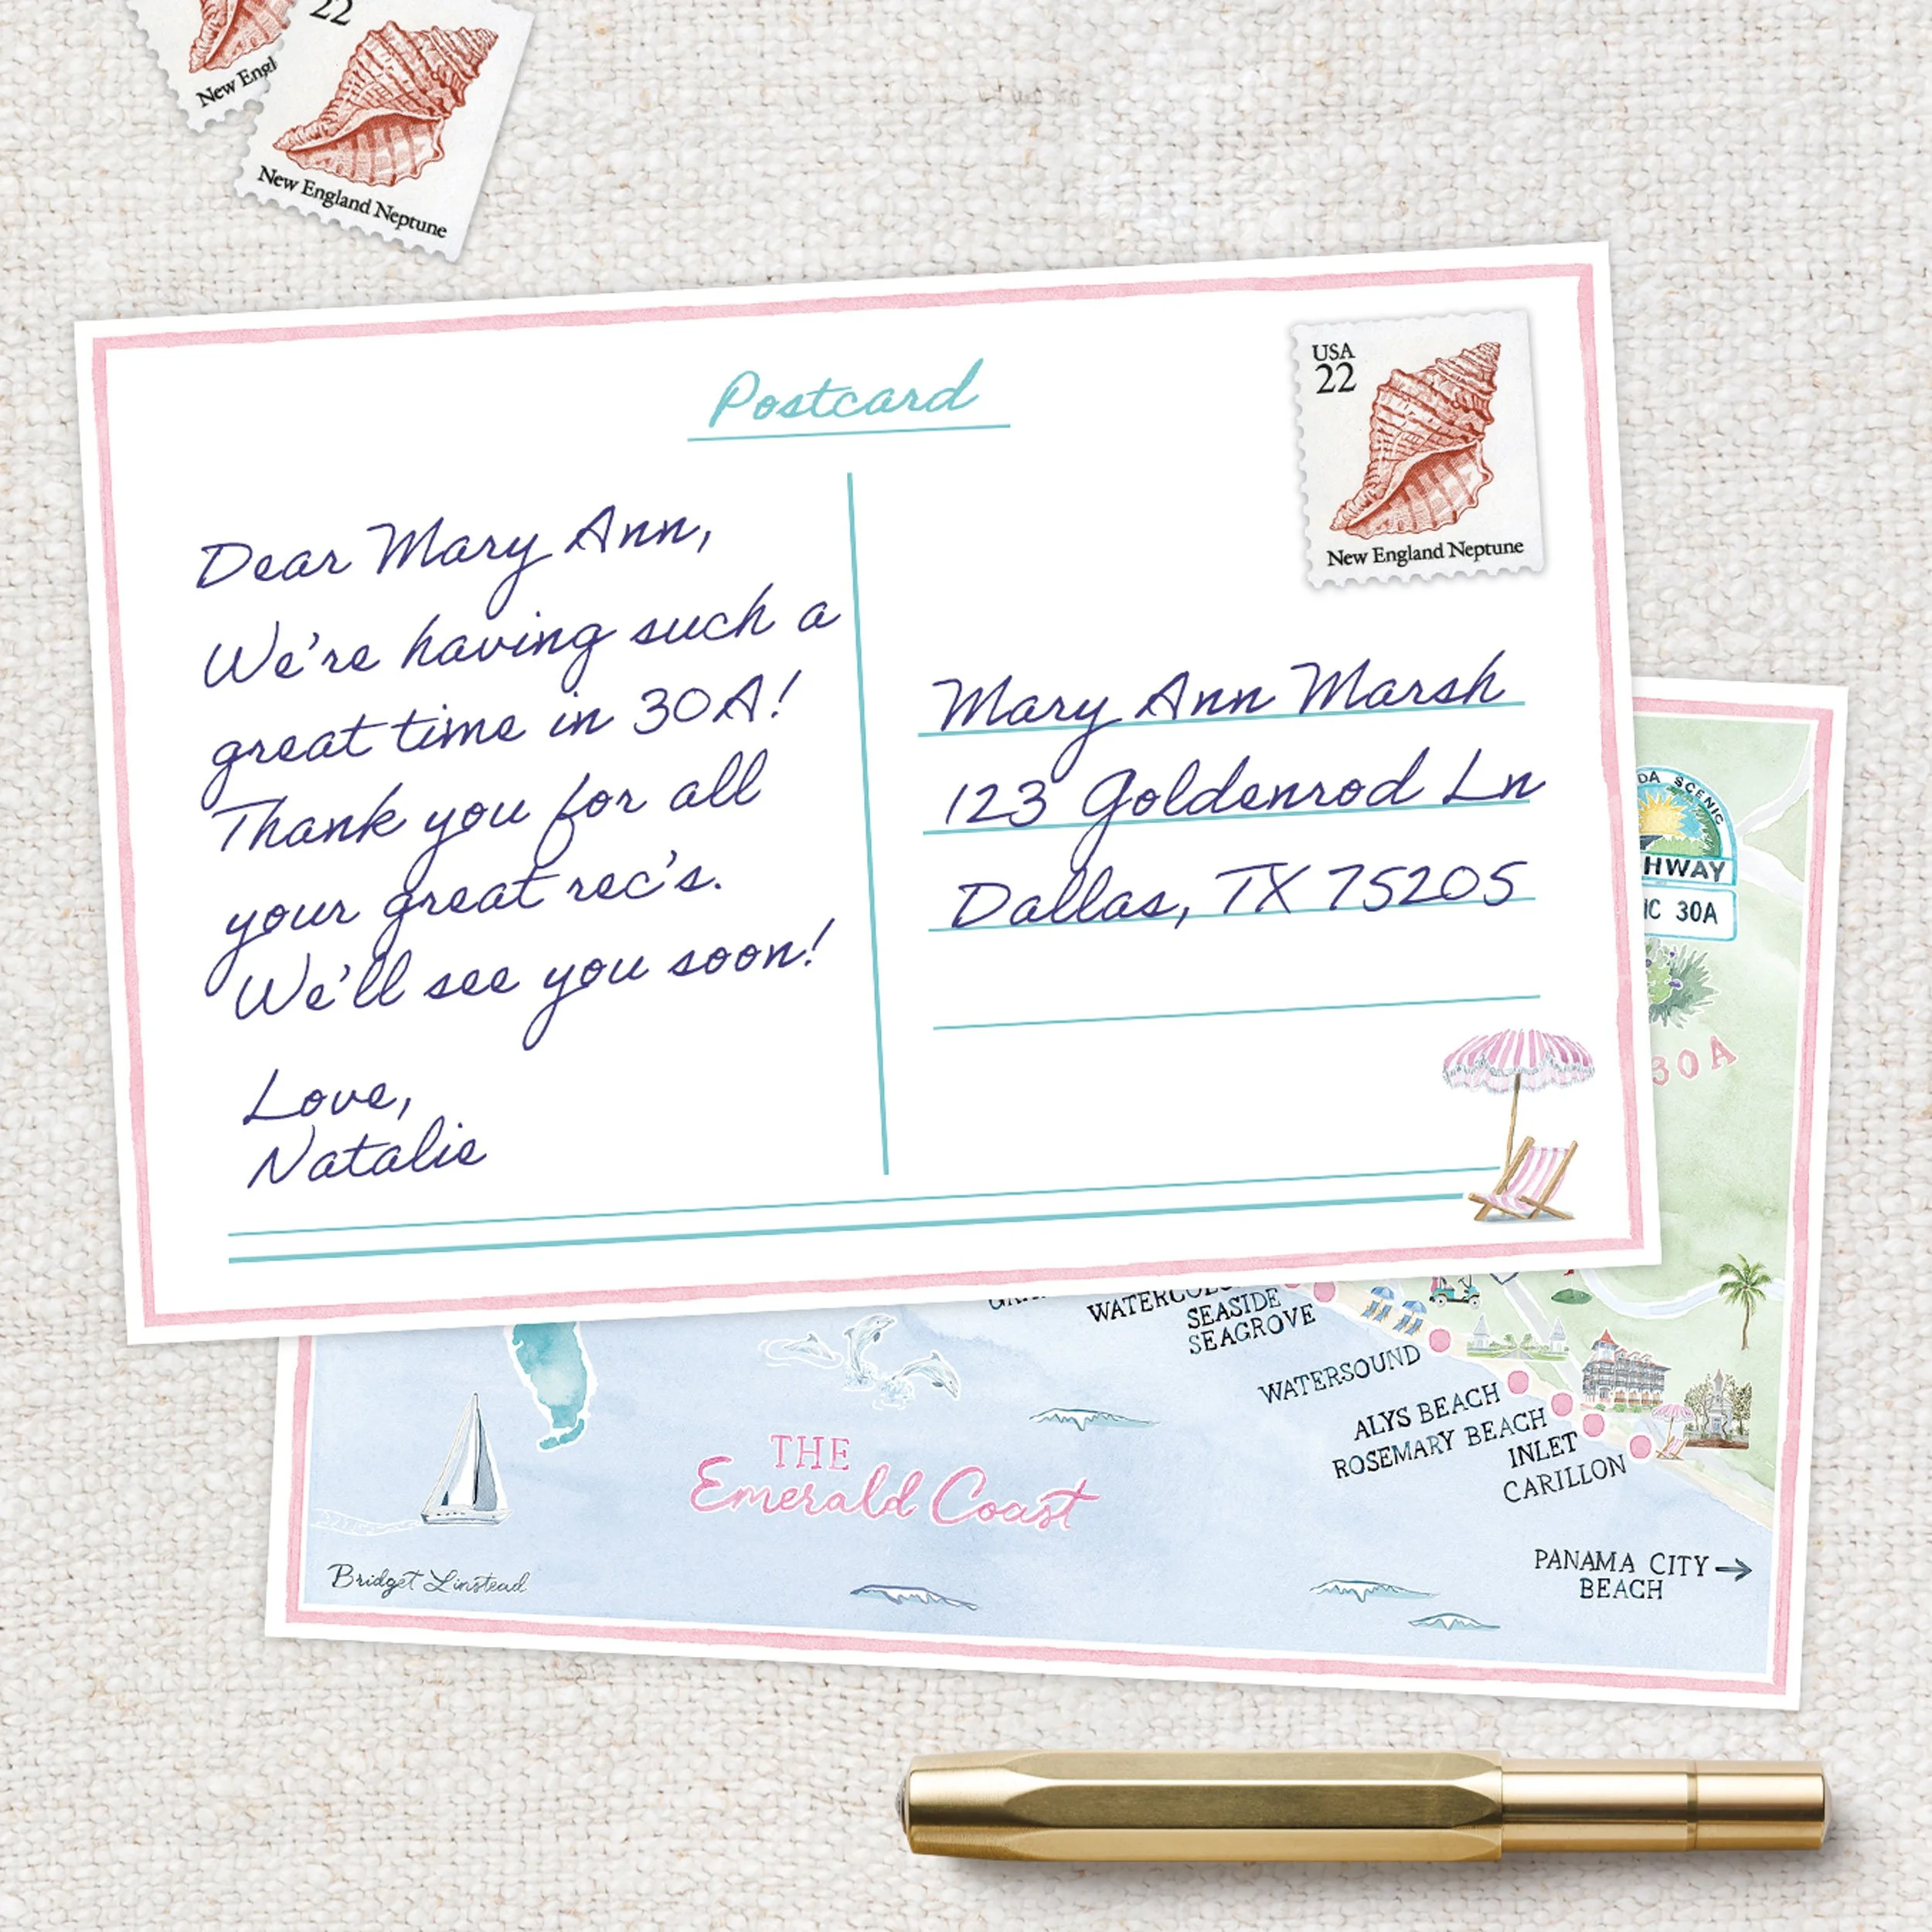 22
New England Neptune
New Engl
Postcard
USA
22
New England Neptune
Dear Mary Ann,
We're having such a
great time in 30A!
Thank you for all
your great rec's.
We'll see you soon!
Love,
Natalie
Mary Ann Marsh
123 Goldenrod Ln
Dallas, TX 75205
DA SCENIC
HWAY
IC 30A
30A
SEASIDE
SEAGROVE
WATERSOUND
ALYS BEACH
ROSEMARY BEACH
INLET
CARILLON
THE
Emerald Coast
Bridget Linstead
PANAMA CITY →
BEACH